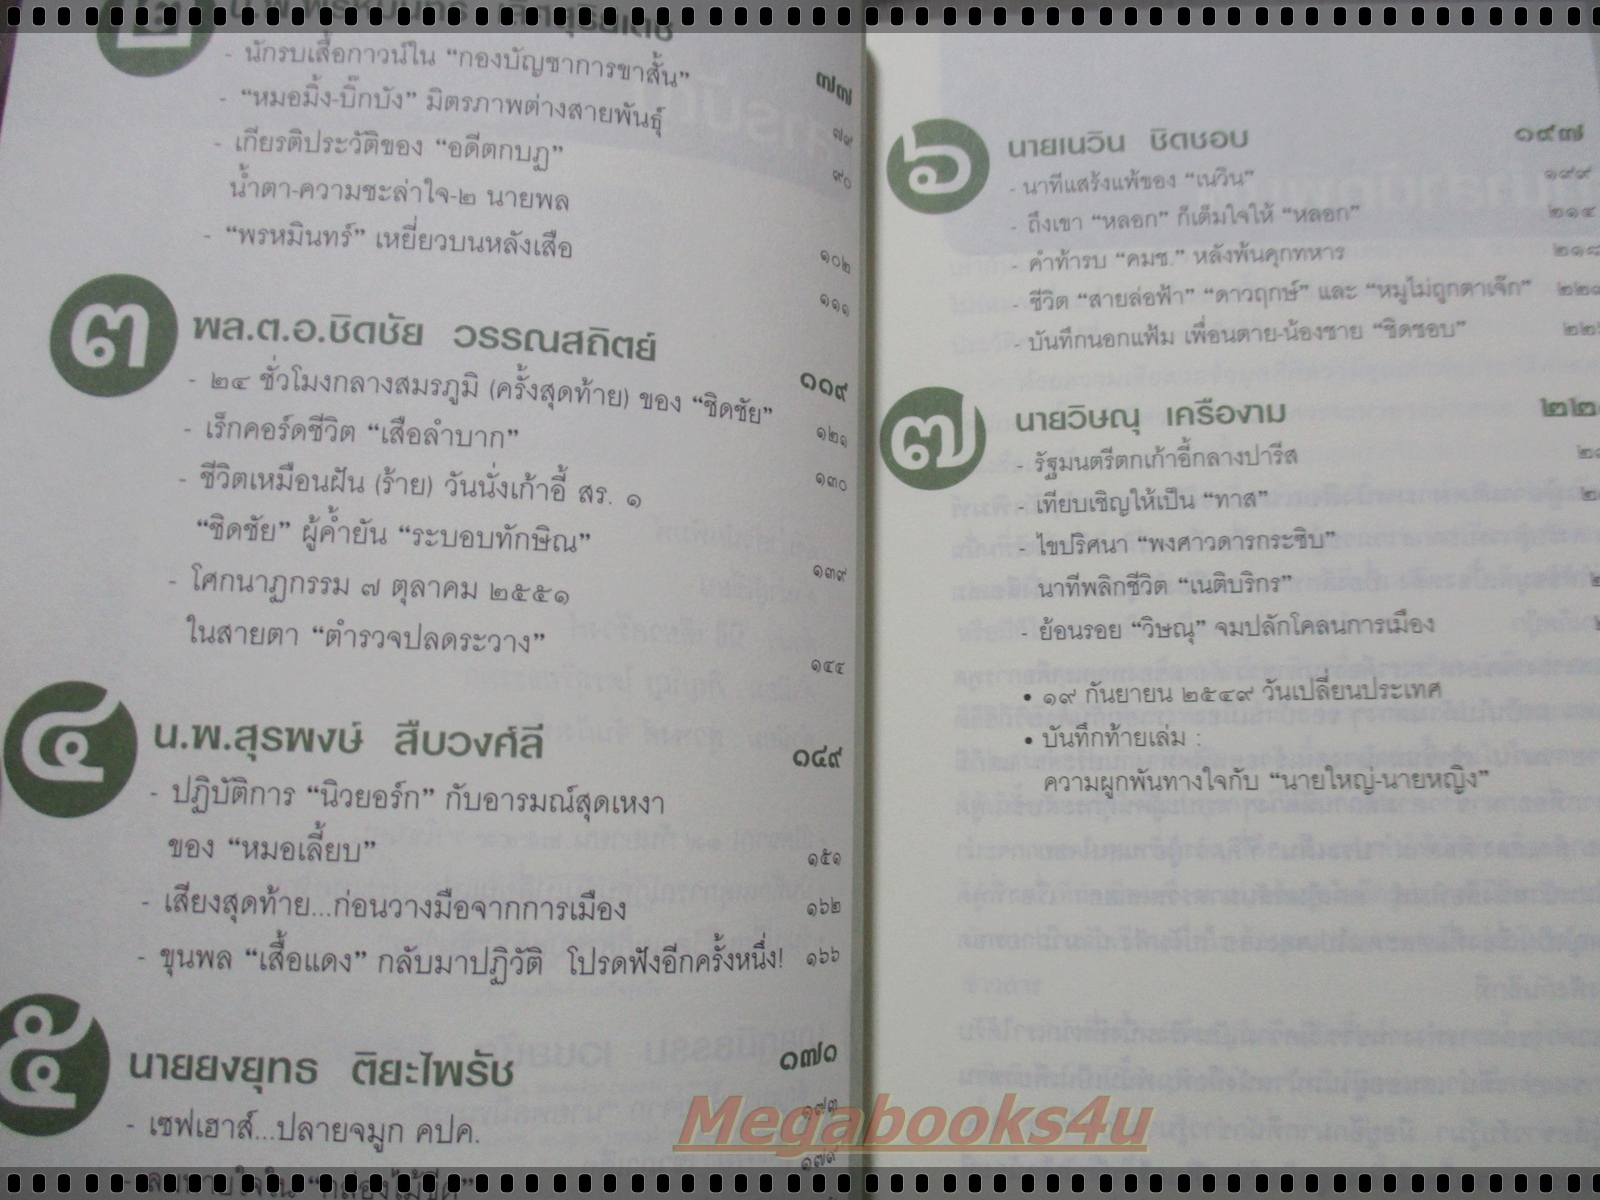 ๒
น.พ.พรหมินทร์ เลิศสุริย์เดช
๗๗
- นักรบเสื้อกาวน์ใน “กองบัญชาการขาสั้น”
๗๙
- “หมอมิ้ง-บิ๊กบัง” มิตรภาพต่างสายพันธุ์
๙๐
- เกียรติประวัติของ “อดีตกบฏ”
น้ำตา-ความชะล่าใจ-๒ นายพล
๑๐๒
- “พรหมินทร์” เหยี่ยวบนหลังเสือ
๑๑๑
๓
พล.ต.อ.ชิดชัย วรรณสถิตย์
๑๑๙
- ๒๔ ชั่วโมงกลางสมรภูมิ (ครั้งสุดท้าย) ของ “ชิดชัย”
๑๒๑
- เร็กคอร์ดชีวิต “เสือลำบาก”
๑๓๐
- ชีวิตเหมือนฝัน (ร้าย) วันนั่งเก้าอี้ สร. ๑
“ชิดชัย” ผู้ค้ำยัน “ระบอบทักษิณ”
๑๓๙
- โศกนาฏกรรม ๗ ตุลาคม ๒๕๕๑
ในสายตา “ตำรวจปลดระวาง”
๑๔๔
๔
น.พ.สุรพงษ์ สืบวงศ์ลี
๑๔๙
- ปฏิบัติการ “นิวยอร์ก” กับอารมณ์สุดเหงา
ของ “หมอเลี้ยบ”
๑๕๑
- เสียงสุดท้าย...ก่อนวางมือจากการเมือง
๑๖๒
- ขุนพล “เสื้อแดง” กลับมาปฏิวัติ โปรดฟังอีกครั้งหนึ่ง!
๑๖๖
๕
นายยงยุทธ ติยะไพรัช
๑๗๑
- เซฟเฮาส์...ปลายจมูก คปค.
๑๗๓
“กล่องไม้ขีด”
๖
นายเนวิน ชิดชอบ
๑๙๗
- นาทีแสร้งแพ้ของ “เนวิน”
๑๙๙
- ถึงเขา “หลอก” ก็เต็มใจให้ “หลอก”
๒๑๔
- คำท้ารบ “คมช.” หลังพ้นคุกทหาร
๒๑๘
- ชีวิต “สายล่อฟ้า” “ดาวฤกษ์” และ “หมูไม่ถูกตาเจ๊ก”
- บันทึกนอกแฟ้ม เพื่อนตาย-น้องชาย “ชิดชอบ”
๗
นายวิษณุ เครืองาม
- รัฐมนตรีตกเก้าอี้กลางปารีส
- เทียบเชิญให้เป็น “ทาส”
- ไขปริศนา “พงศาวดารกระซิบ”
นาทีพลิกชีวิต “เนติบริกร”
- ย้อนรอย “วิษณุ” จมปลักโคลนการเมือง
• ๑๙ กันยายน ๒๕๔๙ วันเปลี่ยนประเทศ
• บันทึกท้ายเล่ม :
ความผูกพันทางใจกับ “นายใหญ่-นายหญิง”
Megabooks4u